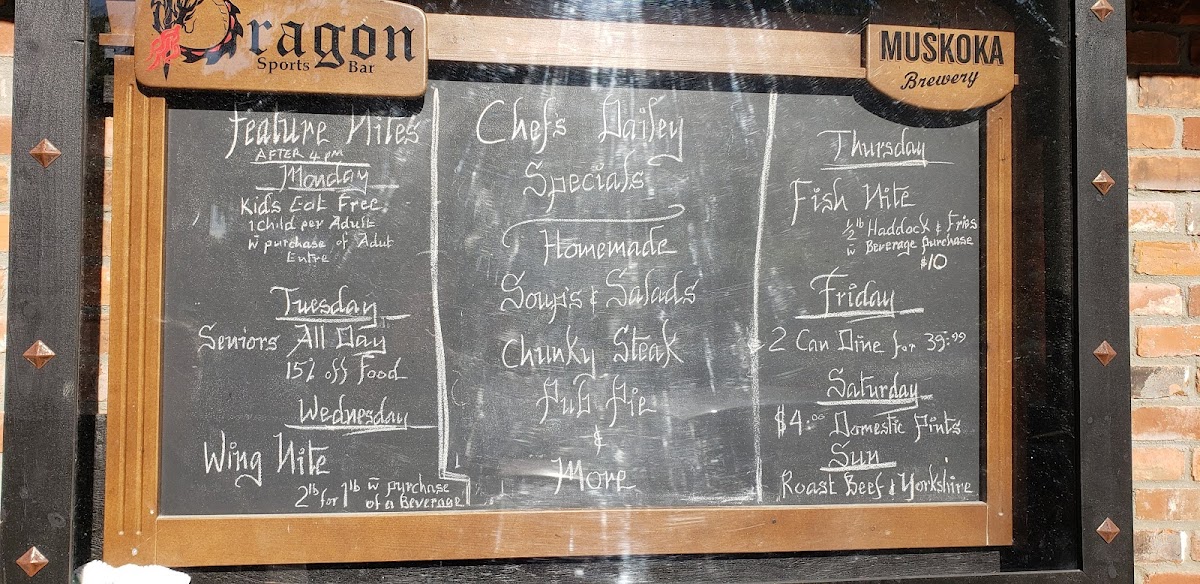 Dragon
Sports Bar
MUSKOKA
Brewery
Feature Nites
AFTER 4 PM
Monday
Kids Eat Free
1 Child per Adult
w purchase of Adut
Entre
Tuesday
Seniors All Day
15% off Food
Wednesday
Wing Nite
2lb for 1lb w purchase
of a Beverage
Chefs Dailey
Specials
Homemade
Soup's & Salads
Chunky Steak
Pub Pie
&
More
Thursday
Fish Nite
½lb Haddock & Fries
w Beverage purchase
$10
Friday
2 Can Dine for 39.99
Saturday
$4.00 Domestic Pints
Sun
Roast Beef & Yorkshire